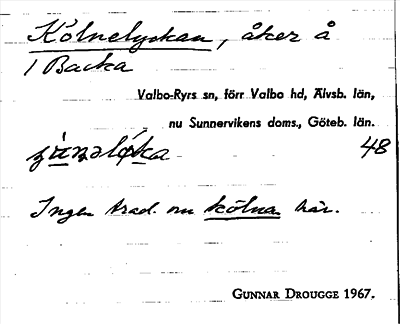 Kölnelyckan, åker å
1 Backa
Valbo-Ryrs sn, förr Valbo hd, Älvsb. län,
nu Sunnervikens doms., Göteb. län.
48
Ingen trad. om kölna här.
GUNNAR DROUGGE 1967.